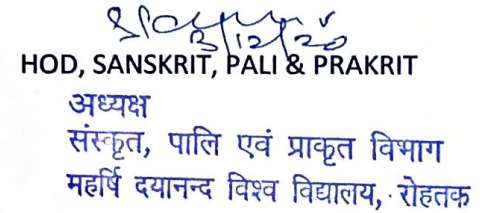 3/12/20
HOD, SANSKRIT, PALI & PRAKRIT
अध्यक्ष
संस्कृत, पालि एवं प्राकृत विभाग
महर्षि दयानन्द विश्व विद्यालय, रोहतक